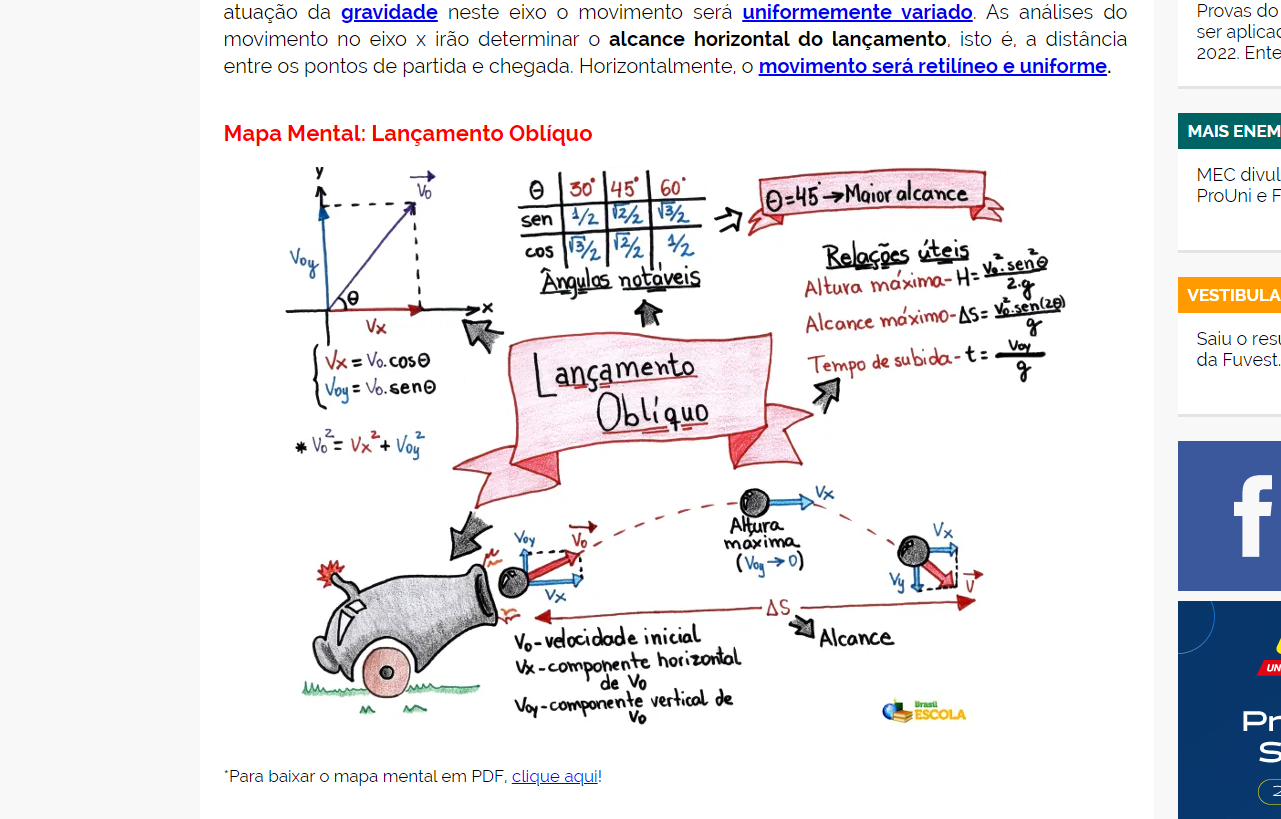 atuação da gravidade neste eixo o movimento será uniformemente variado. As análises do
movimento no eixo x irão determinar o alcance horizontal do lançamento, isto é, a distância
entre os pontos de partida e chegada. Horizontalmente, o movimento será retilíneo e uniforme.
Mapa Mental: Lançamento Oblíquo
y
V₀
V₀y
θ
x
Vx
Vx = V₀.cosθ
V₀y = V₀.senθ
* V₀² = Vx² + V₀y²
θ 30° 45° 60°
sen 1/2 √2/2 √3/2
cos √3/2 √2/2 1/2
Ângulos notáveis
θ=45° → Maior alcance
Relações úteis
Altura máxima - H = V₀².sen²θ / 2.g
Alcance máximo - ΔS = V₀².sen(2θ) / g
Tempo de subida - t = V₀y / g
Lançamento
Oblíquo
V₀y
V₀
Vx
Vx
Altura
máxima
(V₀y → 0)
Vx
Vy
V
ΔS
Alcance
V₀ - velocidade inicial
Vx - componente horizontal
de V₀
V₀y - componente vertical de
V₀
Brasil
ESCOLA
*Para baixar o mapa mental em PDF, clique aqui!
Provas do
ser aplica
2022. Ente
MAIS ENEM
MEC divul
ProUni e F
VESTIBULA
Saiu o resu
da Fuvest.
f
UN
Pr
S
2